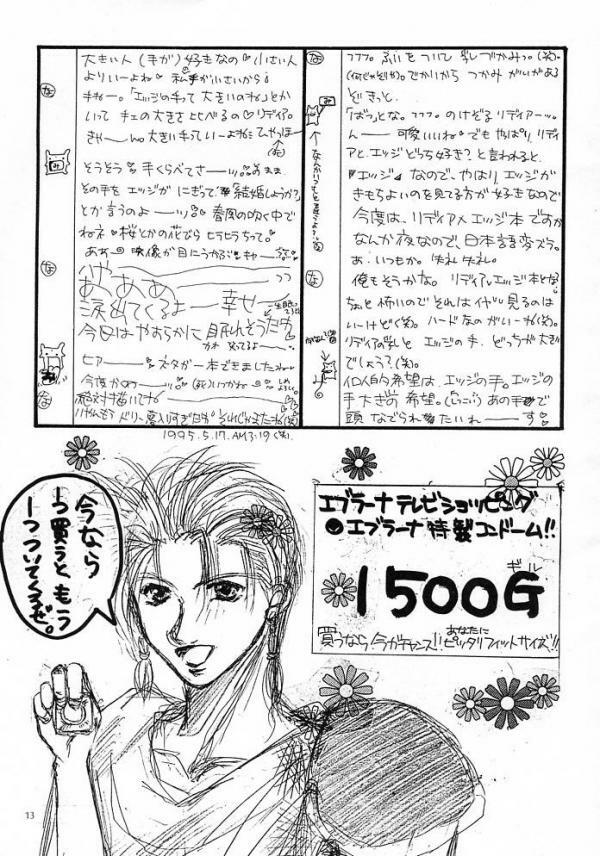 フフフ。ふいをついて乳しづかみっ。(笑)。
(何じゃそりゃ)。でかいから つかみがいがある
ぞきっと。
「ばっ」とな。フフフ。のけぞるリディアーッ。
ん── 可愛いいね でもやっぱり、リディ
アと、エッジどっち好き？と言われると、
「エッジ」なので、やはり、エッジが
きもちよいのを見てる方が好きなので
今度は、リディア×エッジ本ですか
なんか夜なので、日本語変ズラ。
あ。いつもか。失礼失礼。
俺もそうかな。リディア×エッジ本となると
ちょと怖いので それは 見るのは
いーけど(笑)。ハードなのがいーな(笑)。
リディアの乳と エッジの手、どっちが大きい
でしょう？(笑)。
個人的希望は、エッジの手。エッジの
手大きめ希望。 あの手で
頭なでられたいねー
な
な
大きい人(手が)好きなの 小さい人
よりいーよね 私手が小さいから
キャー。「エッジの手って大きいのね」とか
いって 手の大きさ比べるの リディア。
きゃー 大きい手っていーよねー ひゃっほー
(死)
そうそう 手くらべてさー そのまま
その手をエッジがにぎって「結婚しようか？」
とか言うのよー 春風の吹く中で
ねネ 桜とかの花びらヒラヒラちって。
あぁー 映像が目にうかぶ
ハァー
あぁああ
涙出てくるよー 幸せー
今日はやおらかに眠れそうだわ
ヒアー ネタが一本できましたねー
今度かめー (死)いつかね
絶対描いてね
な
な
な
1995.5.17. AM3:19 (笑)
今なら
一つ買うと もう
一つついてくるぜ。
エブラーナテレビショッピング
●エブラーナ特製コンドーム!!
ギル
1500G
あなたに
買うなら今がチャンス!! ピッタリフィットサイズ!!
13